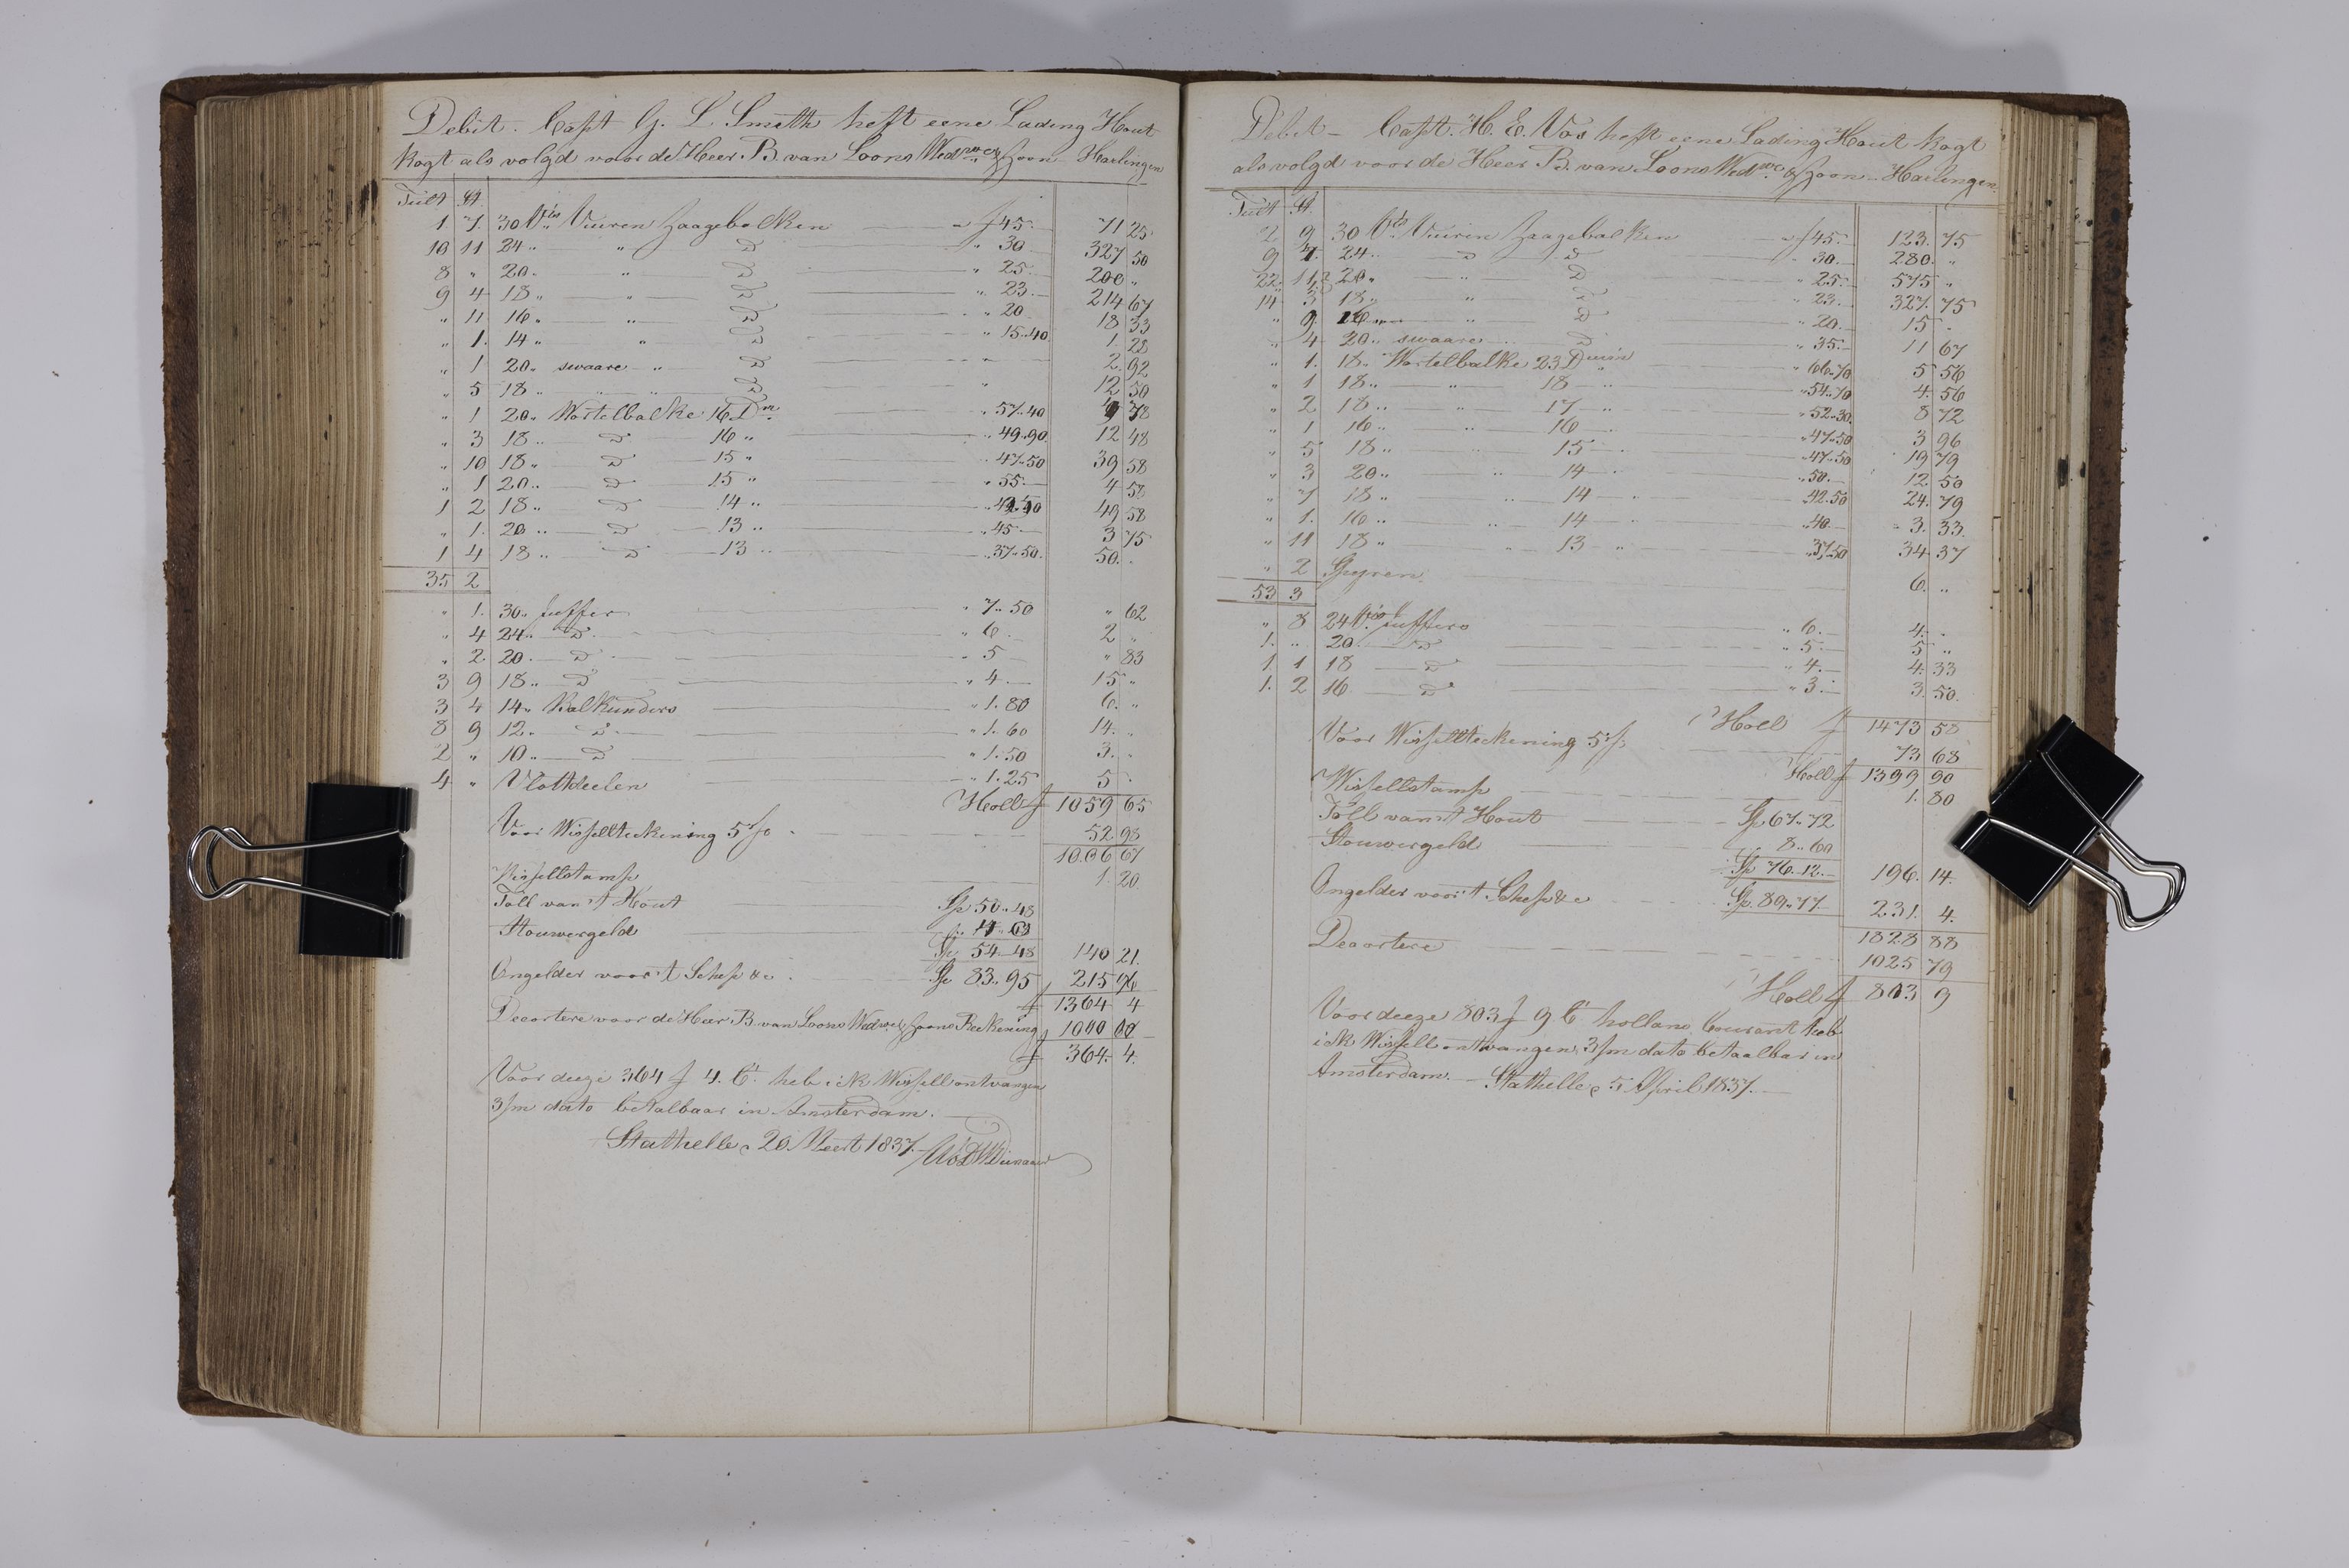 Debit. Capt G. L. Smith heft eene Lading Hout
Kogt als volgd voor de Heer. B. van Loons Wedwe & Zoon Harlingen
Tult St.
1 7 30 Vts Vuuren Zaagebalken f 45 71 25
10 11 24 " " D " 30 327 50
8 " 20 " " D " 25 200 "
9 4 18 " " D " 23 214 67
" 11 16 " " D " 20 18 33
" 1 14 " " D " 15.40 1 28
" 1 20 " swaare " D " 2 92
" 5 18 " " " D " 12 50
" 1 20 " Wortelbalke 16 Dm " 57.40 78
" 3 18 " D 16 " " 49.90 12 48
" 10 18 " D 15 " " 47.50 39 58
" 1 20 " D 15 " " 55 4 58
1 2 18 " D 14 " " 49 58
" 1 20 " D 13 " " 45 3 75
1 4 18 " D 13 " " 37.50 50 "
35 2
" 1 30 " Juffer " 7.50 " 62
" 4 24 " D " 6 2 "
" 2 20 " D " 5 " 83
3 9 18 " D " 4 15 "
3 4 14 " Balkunders " 1.80 6 "
8 9 12 " D " 1.60 14 "
2 " 10 " D " 1.50 3 "
4 " Vlotdeelen " 1.25 5 "
Holl f 1059 65
Voor Wisselltekening 5 % 52 98
1006 67
Wissellstamp 1 20
Toll van 't Hout Sp 50.48
Stouwergeld
Sp 54.48 140 21
Ongelder voor 't Schep &c Sp 83.95 215 96
f 1364 4
Decortere voor de Heer B. van Loons Wedwe & Zoons Reekening 1000 00
f 364 4
Voor deeze 364 f 4 Ct heb ik Wissell ontvangen
3/m dato betalbaar in Amsterdam.
Stathelle 20 Meert 1837
Debet Capt. H. E. Vos heft eene Lading Hout Kogt
als volgd voor de Heer B. van Loons Wedwe & Zoon Harlingen
Tult St.
2 9 30 Vts Vuuren Zaagebalken f 45 123 75
9 4 24 " D D " 30 280 "
22 11½ 20 " " D " 25 575 "
14 3 18 " " D " 23 327 75
" 9 16 " " D " 20 15 "
" 4 20 " swaare D " 35 11 67
" 1 18 " Wortelbalke 23 Duim " 66.70 5 56
" 1 18 " " 18 " " 54.70 4 56
" 2 18 " " 17 " " 52.30 8 72
" 1 16 " " 16 " 47.50 3 96
" 5 18 " " 15 " " 47.50 19 79
" 3 20 " " 14 " " 50 12 50
" 7 18 " " 14 " " 42.50 24 79
" 1 16 " " 14 " " 40 3 33
" 11 18 " " 13 " " 37.50 34 37
" 2 Spyren 6 "
53 3
" 8 24 Vts Juffers " 6 4 "
1 " 20 D " 5 5 "
1 1 18 D " 4 4 33
1 2 16 D " 3 3 50
Holl f 1473 58
Voor Wisselltekening 5 % 73 68
Holl f 1399 90
Wissellstamp 1 80
Toll van 't Hout Sp 67.72
Stouwergeld 8.60
Sp 76.12 196 14
Ongelder voor 't Schep &c Sp 89.77 231 4
1828 88
Decortere 1025 79
Holl f 803 9
Voor deeze 803 f 9 Ct hollans Courant heb
ik Wissell ontvangen 3/m dato betaalbar in
Amsterdam. Stathelle 5 April 1837.